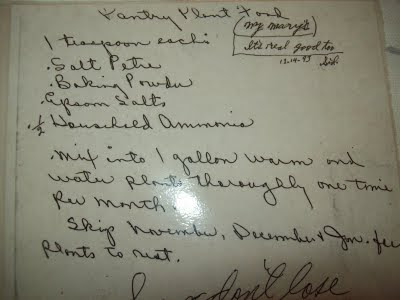 Pantry Plant Food
(my mary's
It's real good too
12-14-93 Sib
1 teaspoon each:
. Salt Petre
. Baking Powder
. Epsom Salts
. 1/2 Household Ammonia
. Mix into 1 gallon warm and
water plants thoroughly one time
Per month.
Skip November, December & Jan. for
plants to rest.
don't lose